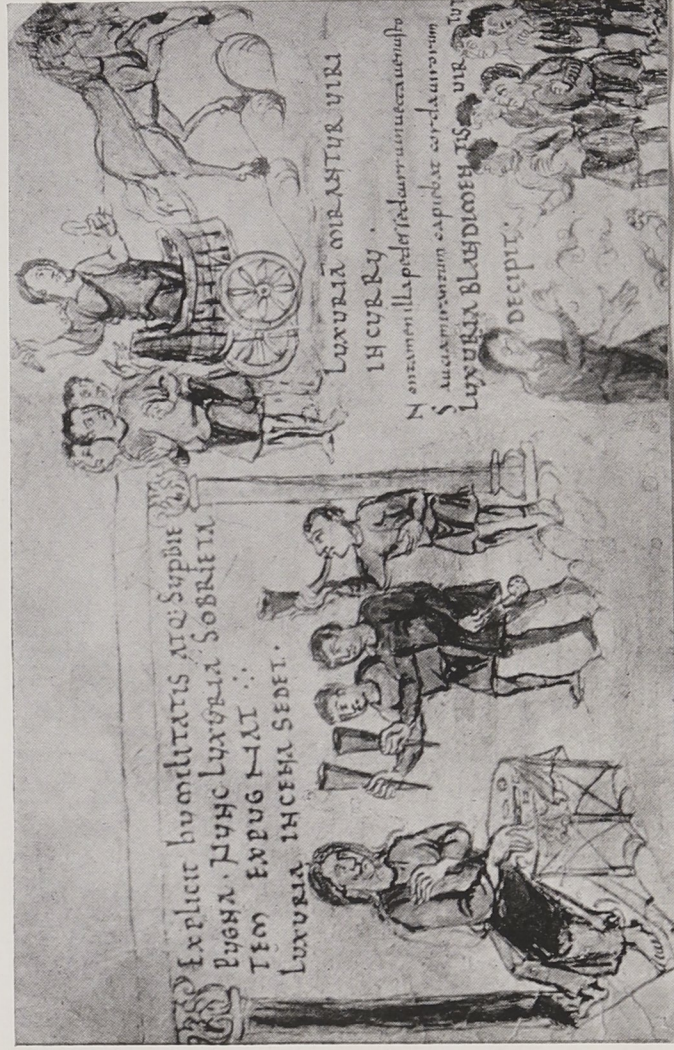 Explicit humilitatis atq: Supbie
pugna. Nunc Luxuria Sobrieta
tem expugnat ∴
Luxuria incena sedet.
Luxuriā mirantur viri
in curru.
Non tamen illa pedes sed curru inuecta uenusto
Saucia mirantum capiebat corda uirorum
Luxuria blandimentis uir tut
decipit.